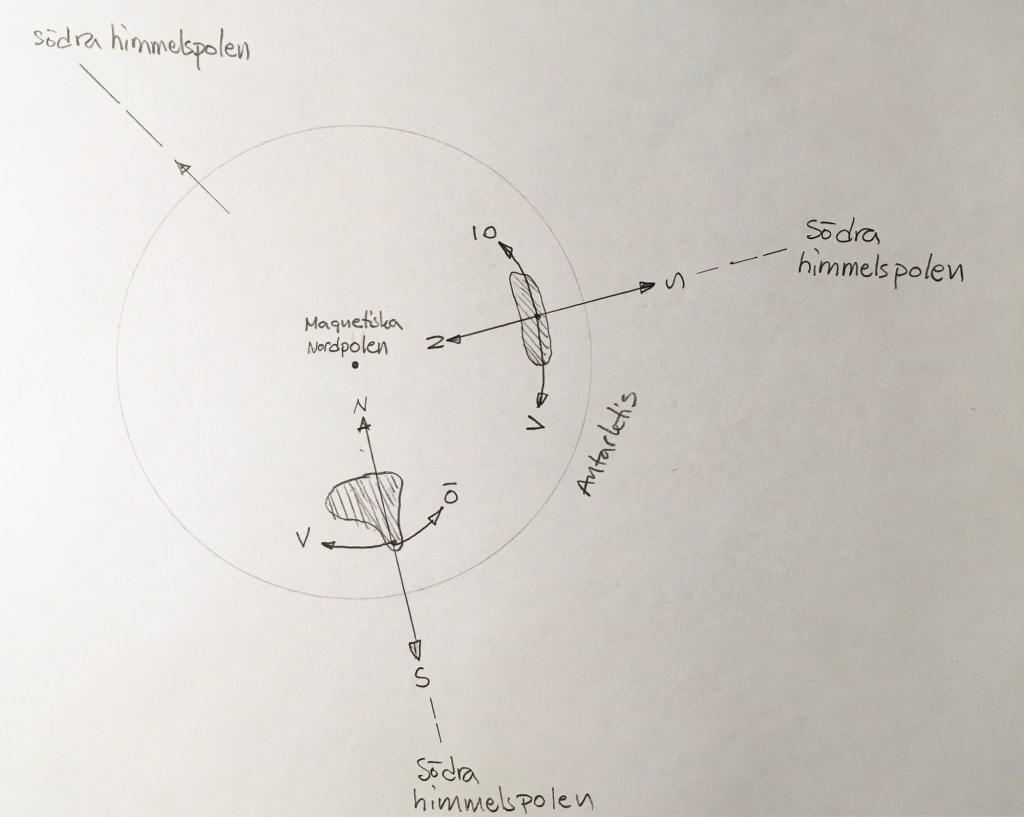 södra himmelspolen
Ō
Södra
himmelspolen
S
Magnetiska
Nordpolen
N
V
N
Antarktis
Ō
V
S
Södra
himmelspolen